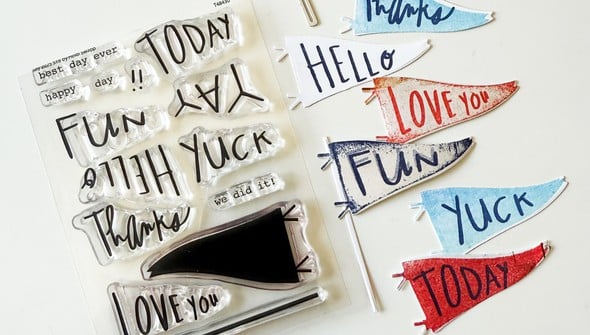 TODAY
best day ever
happy day !!
YAY
FUN
YUCK
HELLO
we did it!
Thanks
LOVE you
Thanks
HELLO
LOVE you
FUN
YUCK
TODAY